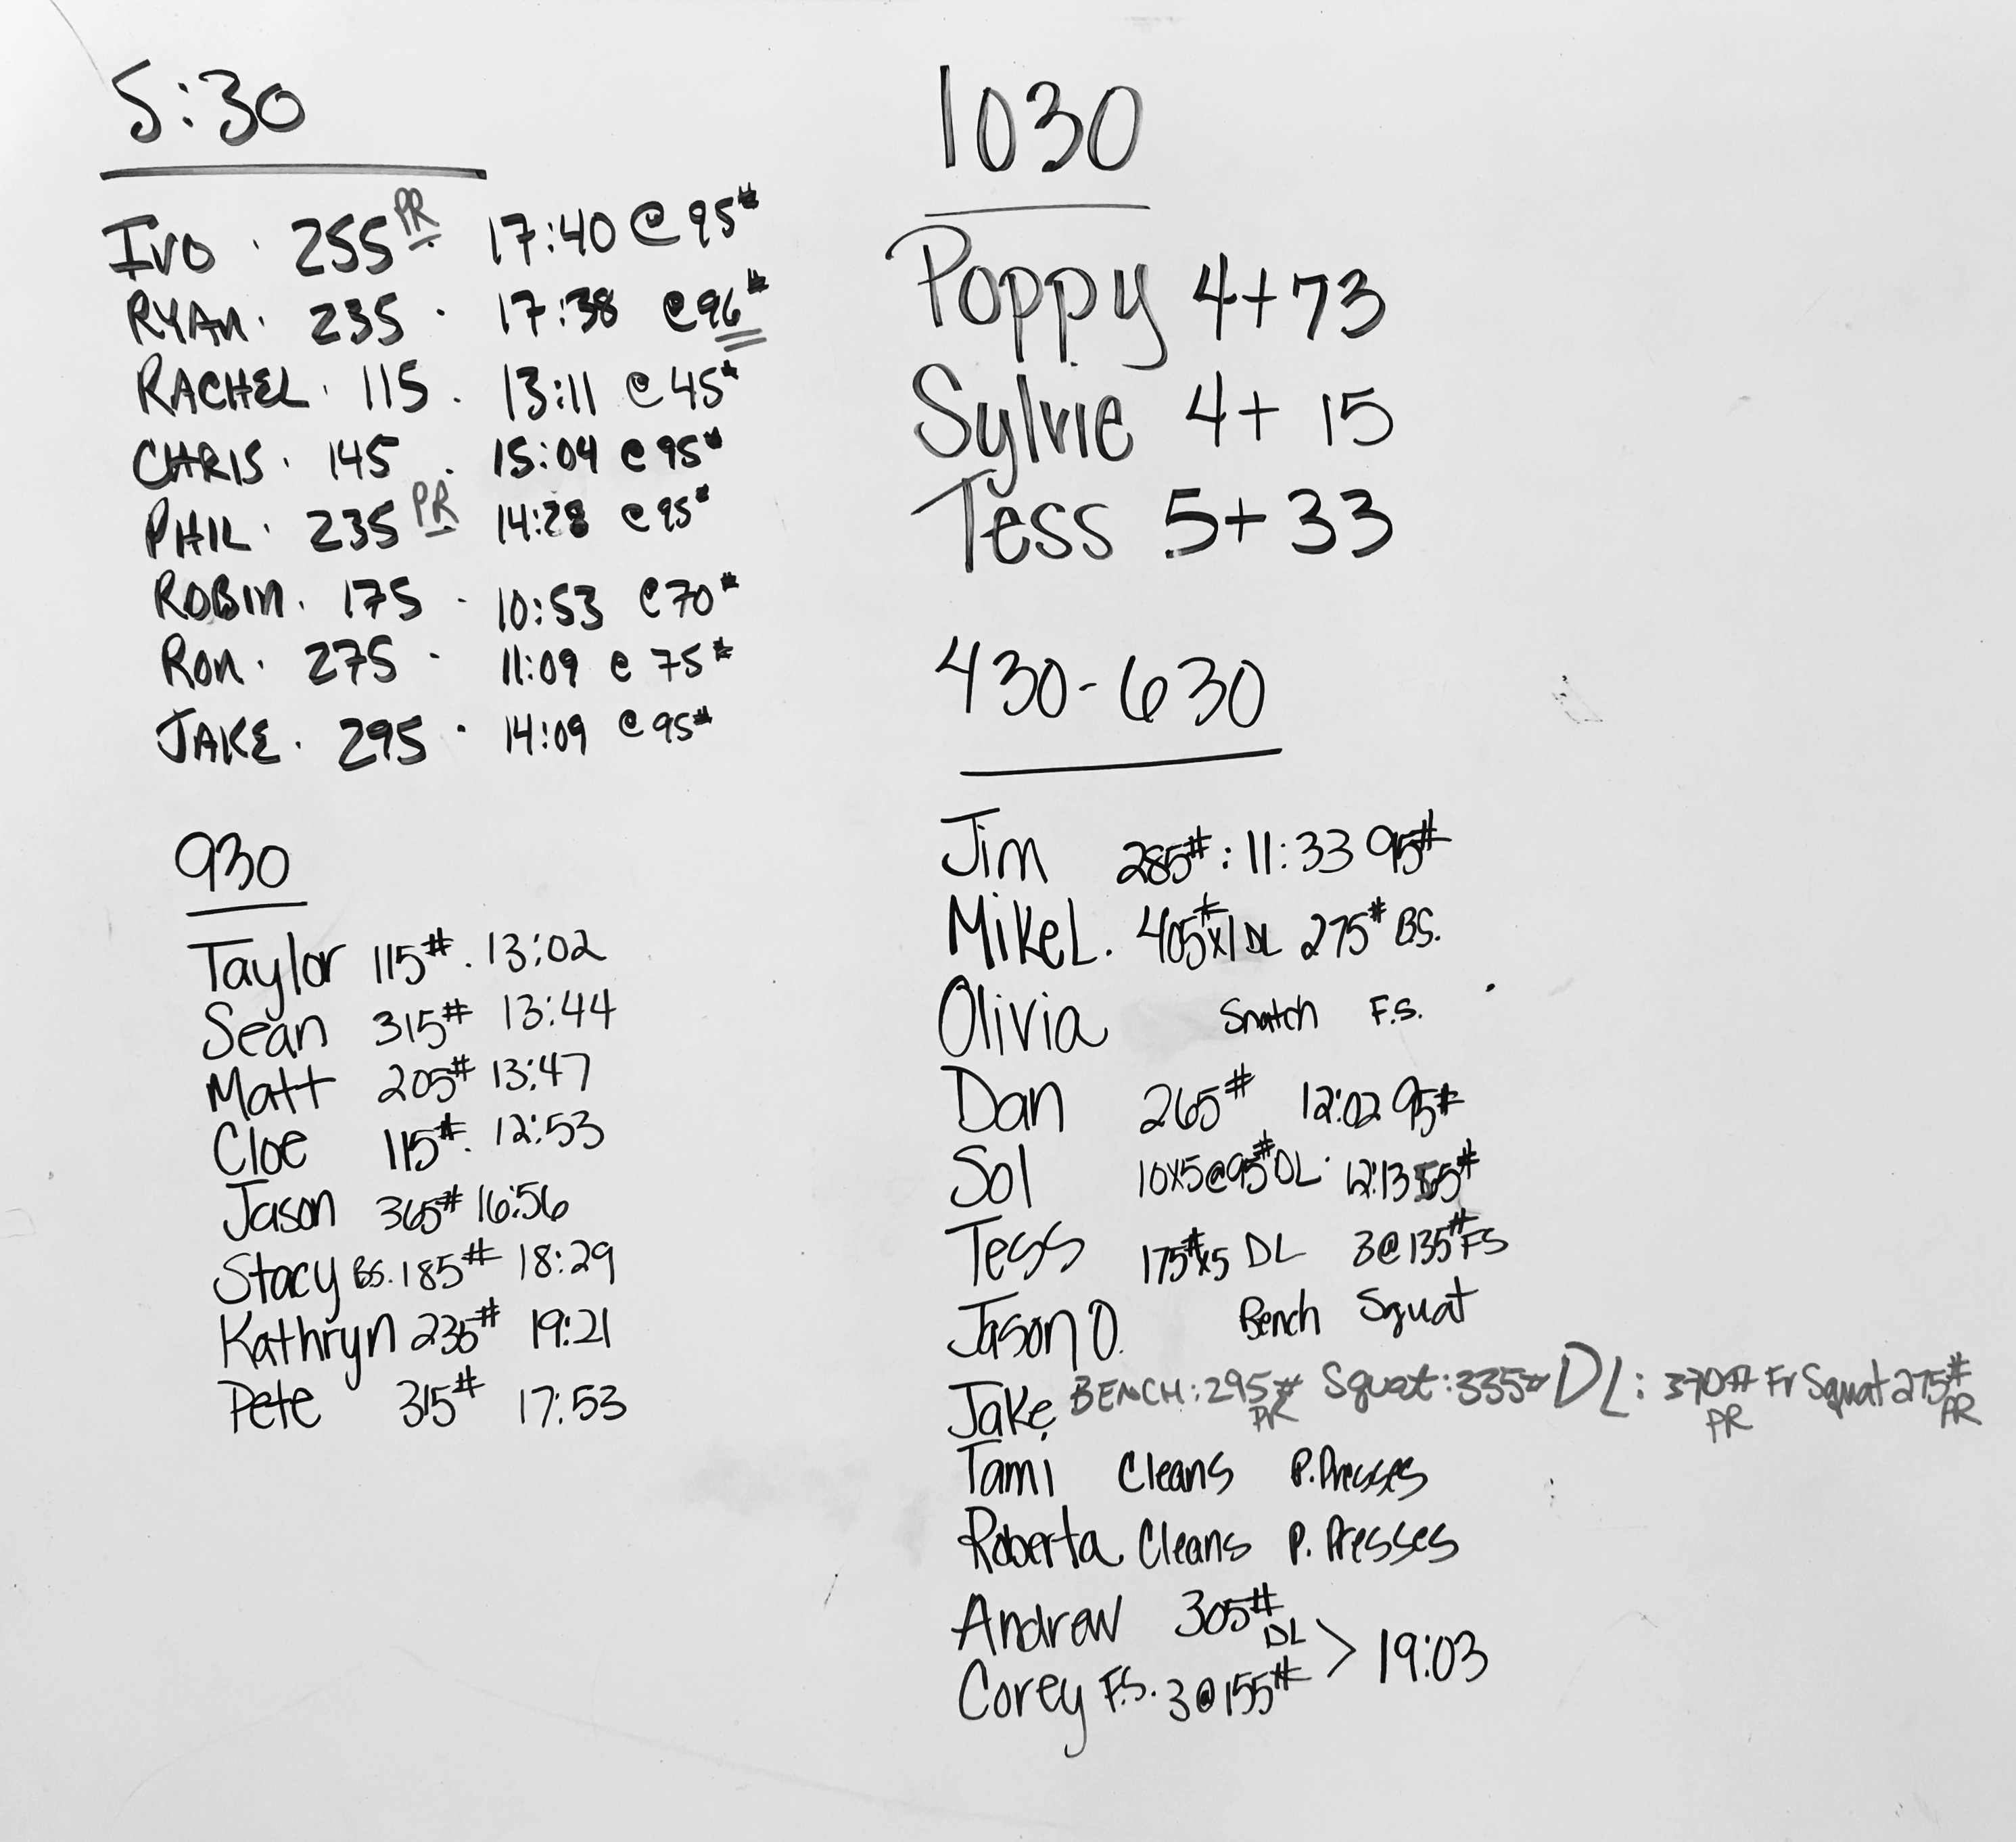 5:30
Ivo · 255 PR 17:40 @ 95#
RYAN · 235 · 17:38 @96#
RACHEL · 115 · 13:11 @ 45#
CHRIS · 145 · 15:04 @ 95#
PHIL · 235 PR 14:28 @ 95#
ROBIN · 175 - 10:53 @70#
RON · 275 - 11:09 @ 75#
JAKE · 295 · 14:09 @ 95#
930
Taylor 115# . 13:02
Sean 315# 13:44
Matt 205# 13:47
Cloe 115# . 12:53
Jason 365# 16:56
Stacy BS. 185# 18:29
Kathryn 235# 19:21
Pete 315# 17:53
1030
Poppy 4+73
Sylvie 4+ 15
Tess 5+ 33
430-630
Jim 285# : 11:33 95#
Mike L. 405#x1 DL 275# BS.
Olivia Snatch F.S.
Dan 265# 12:02 95#
Sol 10x5@95# DL · 12:13 55#
Tess 175#x5 DL 3@135# FS
Jason O. Bench Squat
Jake BENCH: 295# PR Squat: 335# DL: 370# PR Fr Squat 275# PR
Tami Cleans P. Presses
Roberta Cleans P. Presses
Andrew 305# DL
Corey F.S. 3@155# > 19:03